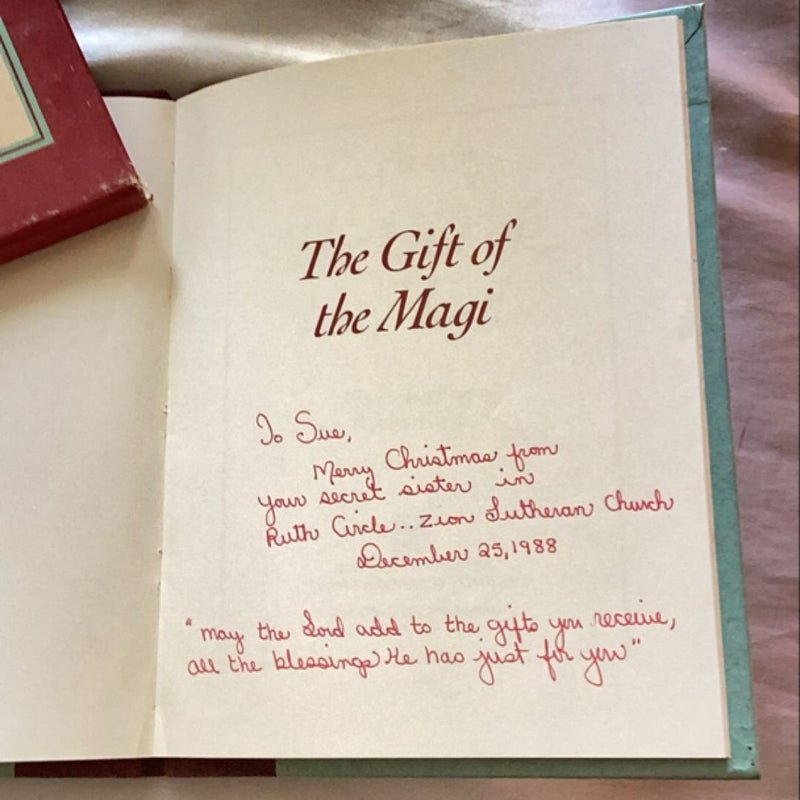 The Gift of
the Magi
To Sue,
Merry Christmas from
your secret sister in
Ruth Circle.. Zion Lutheran Church
December 25, 1988
"may the Lord add to the gifts you receive,
all the blessings He has just for you"